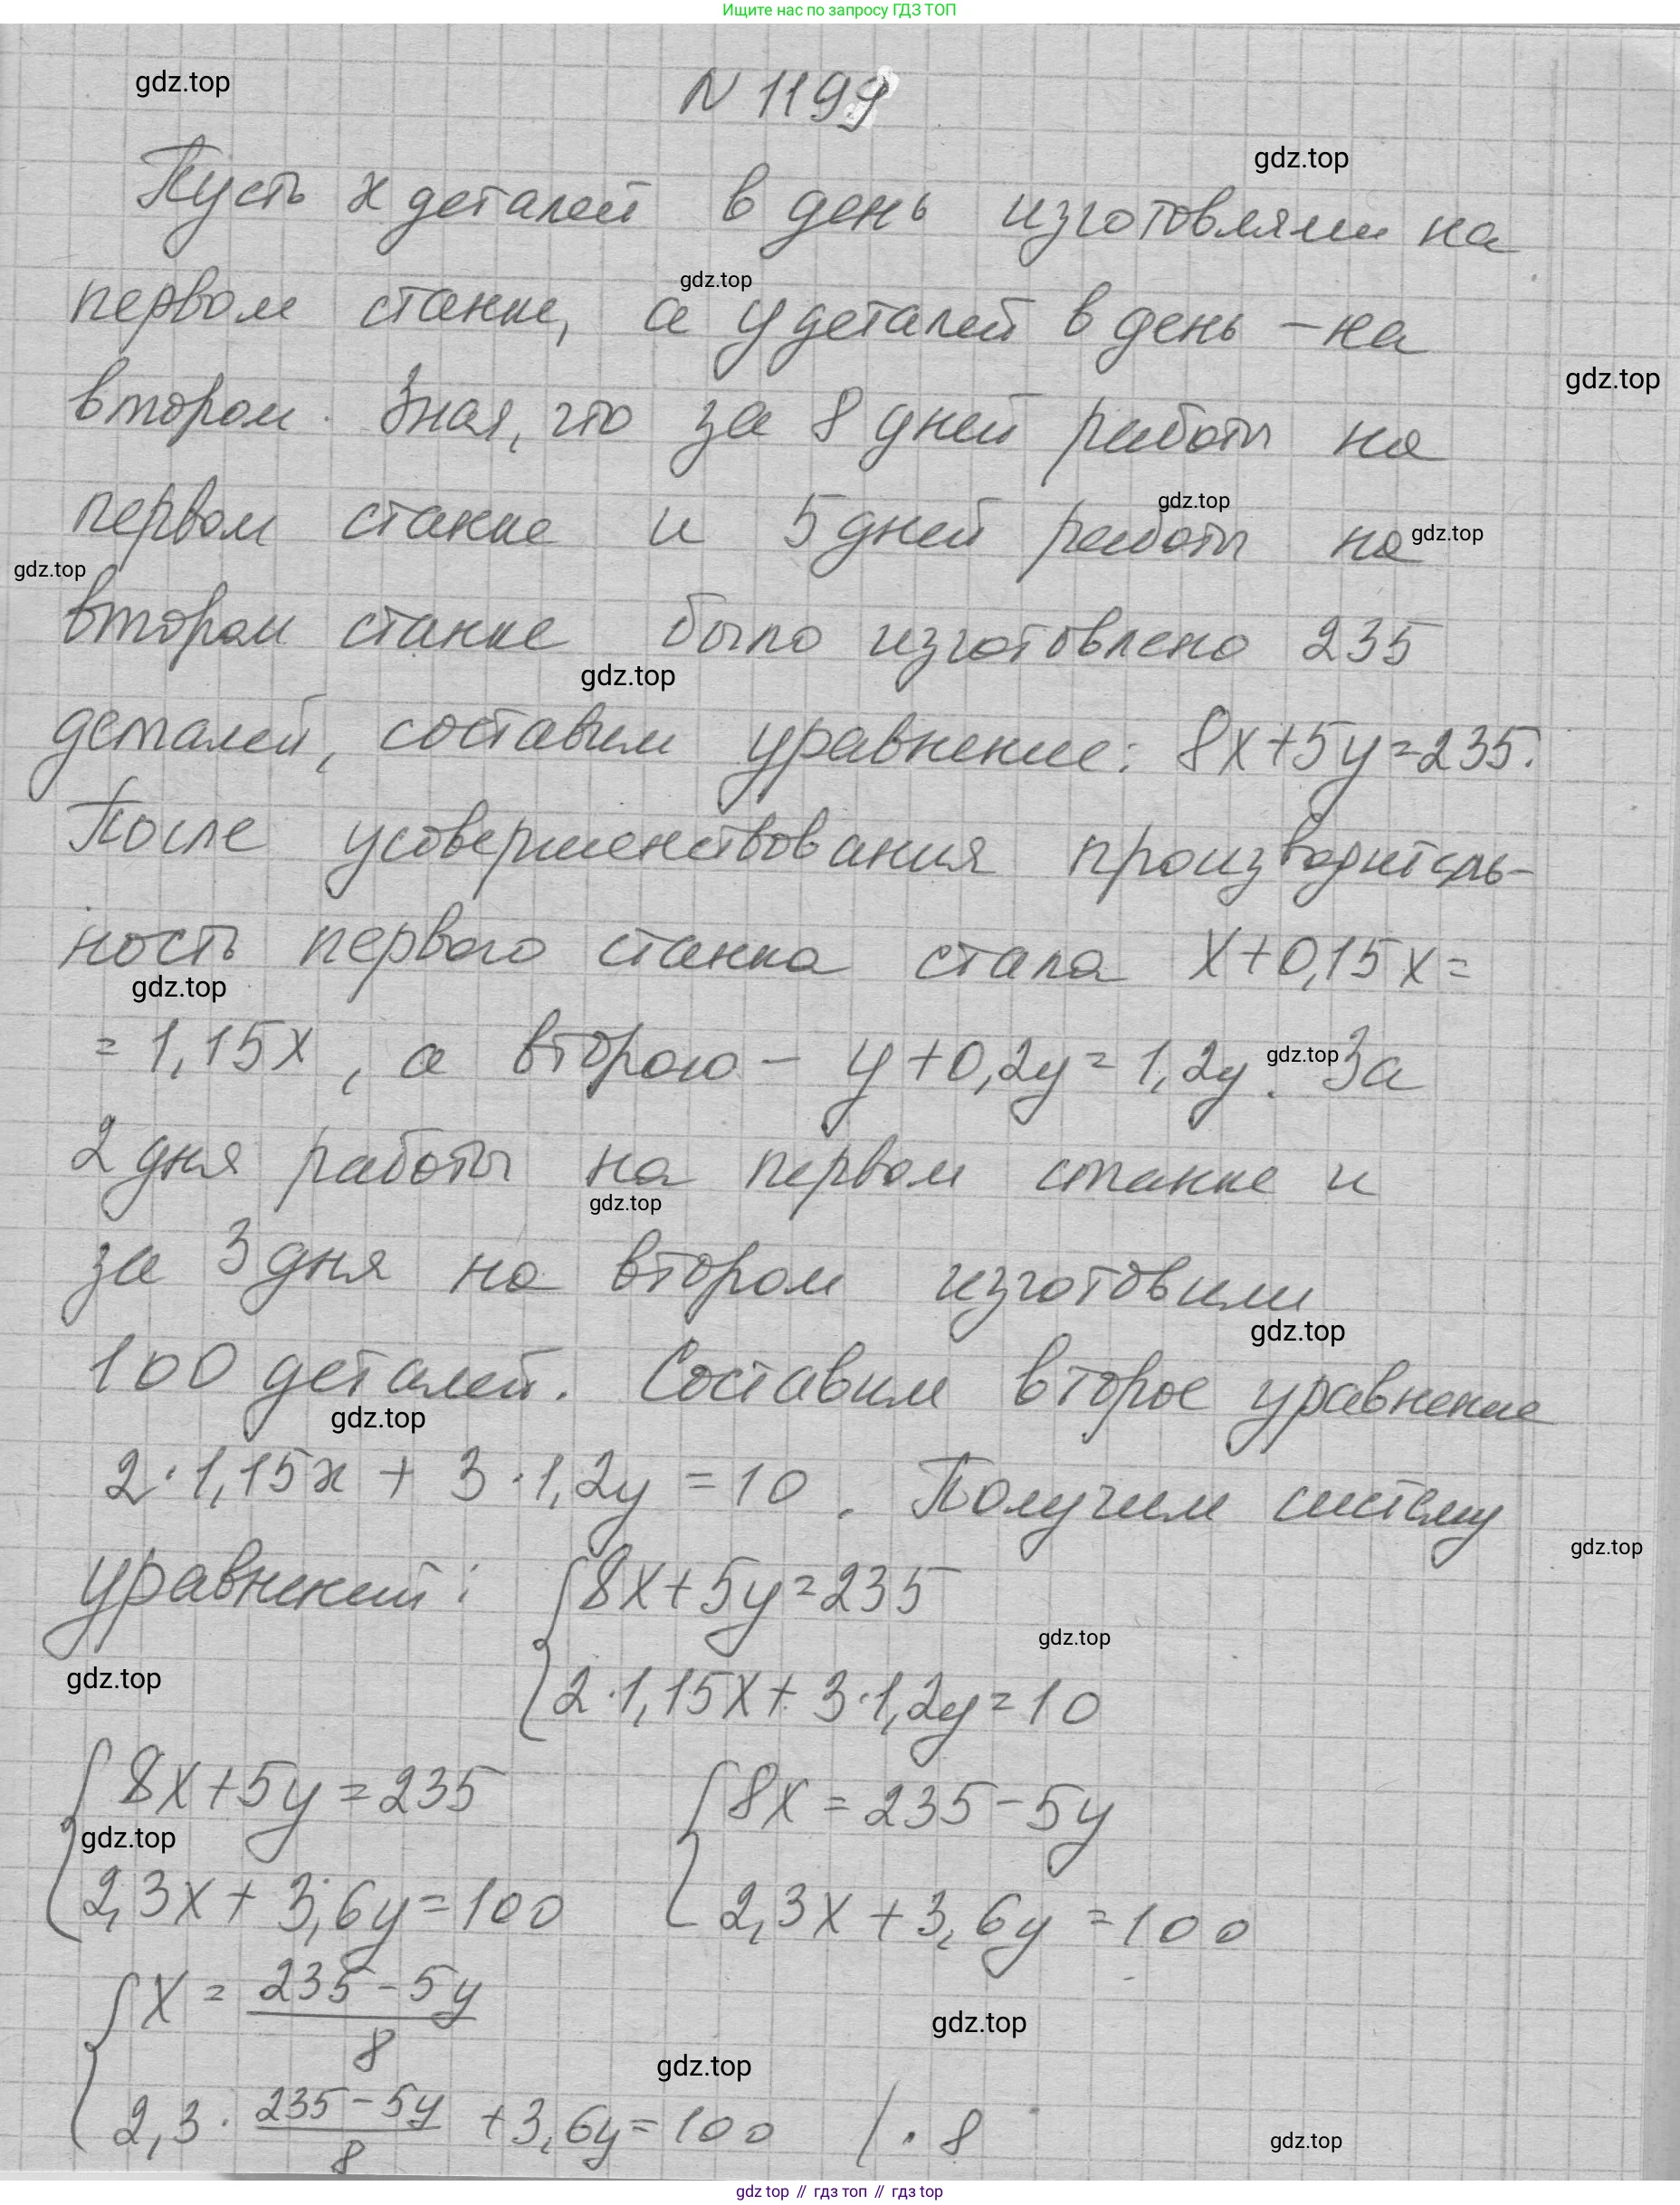 Ищите нас по запросу ГДЗ ТОП
gdz.top
N 1199
gdz.top
Пусть x деталей в день изготовляли на
gdz.top
первом станке, а y деталей в день – на
gdz.top
втором. Зная, что за 8 дней работы на
gdz.top
первом станке и 5 дней работы на
gdz.top
gdz.top
втором станке было изготовлено 235
gdz.top
деталей, составим уравнение: 8x+5y=235.
После усовершенствования производитель-
ность первого станка стала x+0,15x=
gdz.top
= 1,15x, а второго – y+0,2y=1,2y. За
gdz.top
2 дня работы на первом станке и
gdz.top
за 3 дня на втором изготовили
gdz.top
100 деталей. Составим второе уравнение
gdz.top
2·1,15x + 3·1,2y = 10. Получим систему
gdz.top
уравнений: {8x+5y=235
gdz.top
2·1,15x+3·1,2y=10
gdz.top
{8x+5y=235 {8x=235-5y
gdz.top
2,3x+3,6y=100 2,3x+3,6y=100
{x = (235-5y)/8
gdz.top
gdz.top
2,3·(235-5y)/8 +3,6y=100 /·8
gdz.top
gdz top // гдз топ // гдз top